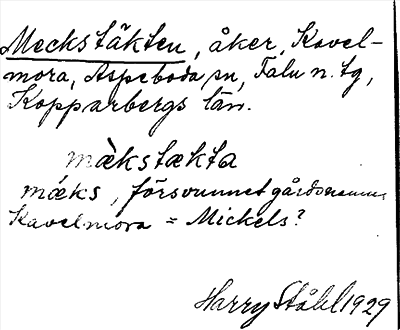 Meckstäkten, åker, Kavel-
mora, Aspeboda sn, Falu n. tg,
Kopparbergs län.
mὰkstækta
mǽks, försvunnet gårdsnamn
Kavelmora = Mickels?
Harry Ståhl 1929